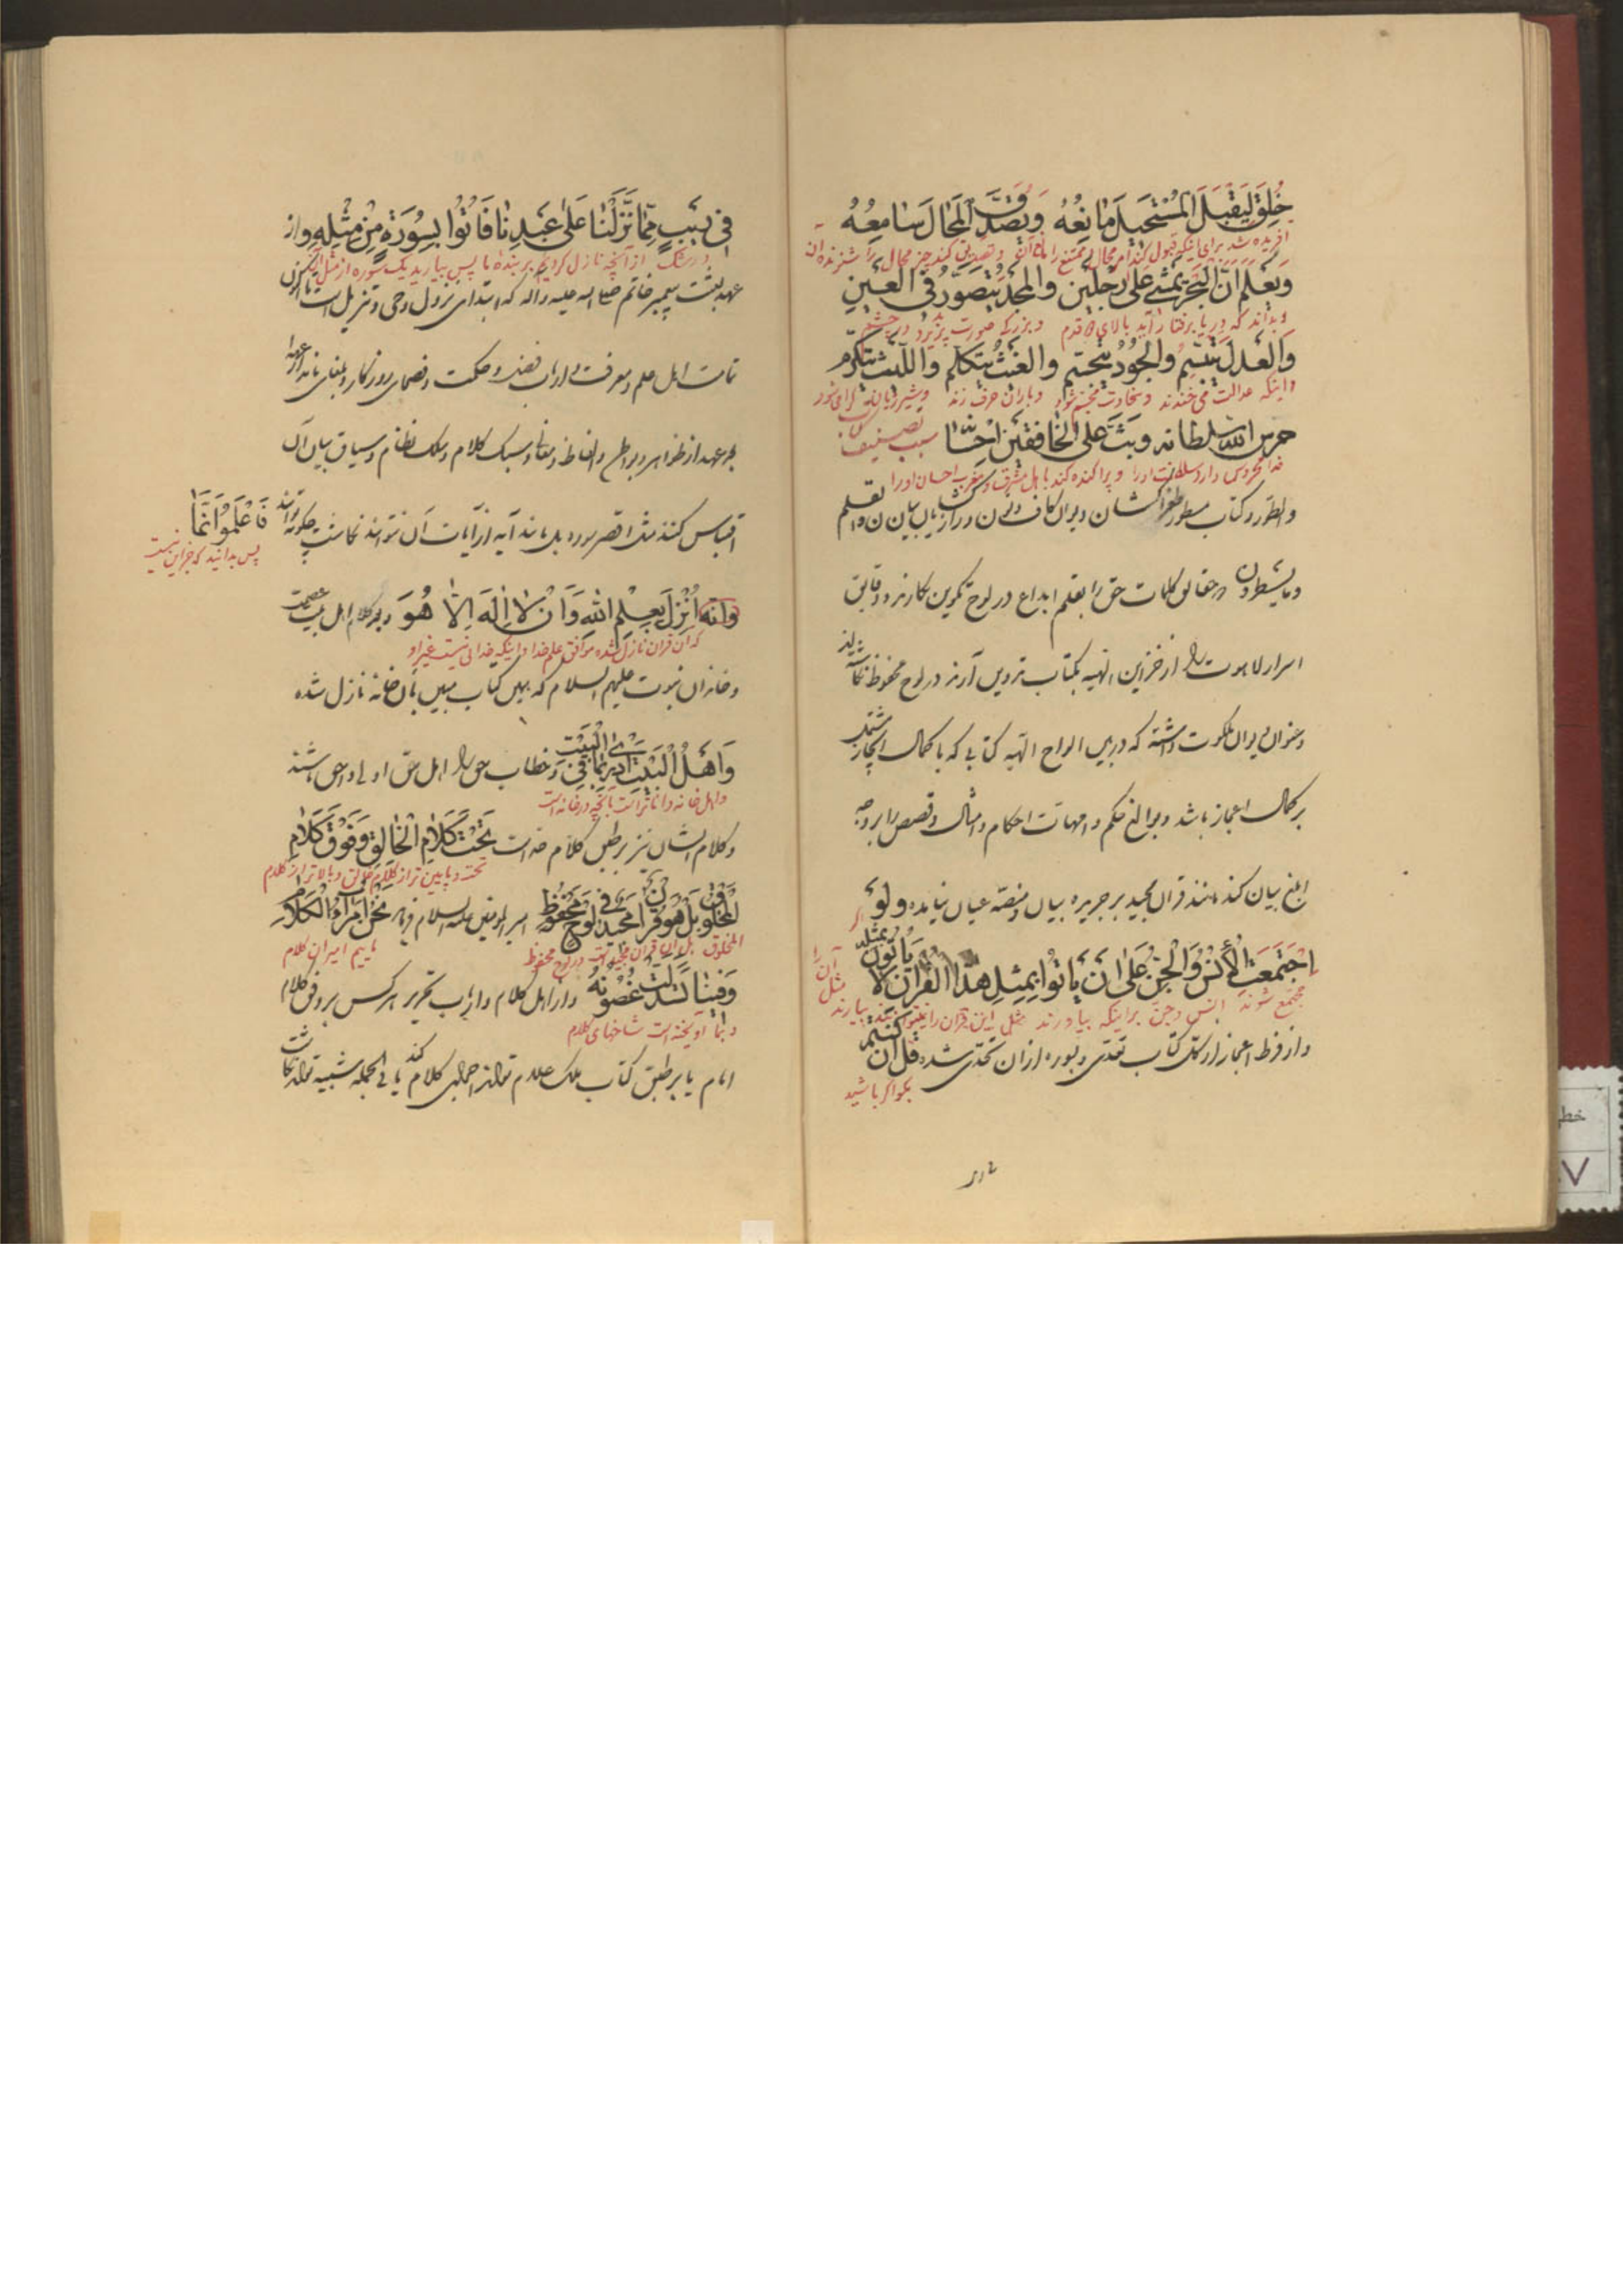 خُلِقَ لِيَقْبَلَ الْمُسْتَحيلَ مانِعُهُ وَيُصَدِّقَ الْمُحالَ سامِعُهُ
آفریده شد برای اینکه قبول کند امر محال و ممتنع را مانع آن و تصدیق کند چیز محال را شنونده آن
وَيَعْلَم اَنَّ الْبَحْرَ يَمْشي عَلى رِجْلَيْنِ وَالْمَجْدَ يُتَصَوَّرُ فِي الْعَيْنِ
و بداند که دریا برفتار آید بالای دو قدم و بزرگی صورت پذیرد در چشم
وَالْعَدْلَ يَتَبَسَّمُ وَالْجُودَ يَتَجَسَّم وَالْغَيْثَ يَتَكَلَّم وَاللَّيْثَ يَتَكَرَّم
و اینکه عدالت می خندد و سخاوت مجسّم شود و باران حرف زند و شیر ژیان
حرس الله سلطانه وبَثَّ عَلَى الْخافِقَيْنِ اِحْسانَهُ سبب تصنیف کتاب
خدا محروس دارد سلطنت او را و پراکنده کند باهل مشرق و مغرب احسان او را
والطّور وكتاب مسطور دیوان کاف و نون و ن والقلم
وما یسطرون در حقایق کلمات حق را بقلم ابداع در لوح تکوین نگارند و دقایق
اسرار لاهوت را از خزاین الهیه بکتاب تدوین آرند در لوح محفوظ
دیوان ملکوت داشته که در بین الواح الهیّه کتابی که با کمال ایجاز مشتمل
بر کمال اعجاز باشد و بدایع حکم و امهات احکام و امثال و قصص را بر وجه
ابلغ بیان کند مانند قرآن مجید بر جریده بیان و منصّه عیان نیامده وَلَوْ
اگر
اجْتَمَعَتِ الْاِنْسُ وَالْجِنُّ عَلى اَنْ يَأْتُوا بِمِثْلِ هٰذَا الْقُرْانِ لا يَأْتُونَ بِمِثْلِه
مجتمع شوند انس و جن بر اینکه بیاورند مثل این قرآن را نمیتوانند بیارند مثل آن را
و از فرط اعجاز از کلّ کتاب تعدّی و بسوره از آن تحدّی شده قُلْ اِنْ كُنْتُمْ
بگو اگر باشید
في رَيْبٍ مِمّا نَزَّلْنا عَلى عَبْدِنا فَأْتُوا بِسُورَةٍ مِنْ مِثْلِهِ و از
در شک از آنچه نازل کردیم بر بنده ما پس بیارید یک سوره از مثل آن
عهد بعثت پیغمبر خاتم صلی الله علیه و آله که ابتدای نزول وحی و تنزیل است تا اکنون
تمامت اهل علم و معرفت و ارباب فضل و حکمت و فصحای روزگار و بلغای
از ظواهر و بواطن و الفاظ و معانی و سبک کلام و سلک نظام و سیاق بیان آن
اقتباس کنند مثل اقصر سوره بل مانند آیه از آیات آن نتوانند نگاشت چگونه توانند فَاعْلَمُوا اَنَّما
پس بدانید که جز این نیست
اُنْزِلَ بِعِلْمِ اللهِ وَاَنْ لا اِلٰهَ اِلّا هُوَ کلام اهل بیت عصمت
که آن قرآن نازل شده موافق علم خدا و اینکه خدائی نیست غیر او
و خاندان نبوت علیهم السلام که بهین کتاب مبین بآن خانه نازل شده
وَاَهْلُ الْبَيْتِ اَدْرى بِما فِي الْبَيْتِ و خطاب حق را اهل حق اولی و احق باشند
و اهل خانه داناتر است بآنچه در خانه است
و کلام ایشان نیز بر طبق کلام خداست تَحْتَ كَلامِ الْخالِقِ وَفَوْقَ كَلامِ
تحت و پایین تر از کلام خالق و بالاتر از کلام
الْمَخْلُوقِ بَلْ هُوَ قُرْانٌ مَجيدٌ في لَوْحٍ مَحْفُوظٍ امیر المؤمنین علیه السلام فرماید نَحْنُ اُمَراءُ الْكَلامِ
المخلوق بل آن قرآن مجید است در لوح محفوظ ماییم امیران کلام
وَفينا تَهَدَّلَتْ غُصُونُهُ و از اهل کلام و ارباب تحریر هر کس بر وفق کلام
و بما آویخته است شاخهای کلام
امام یا بر طبق کتاب ملک علام تواند اجمالی کلام کند یا فی الجمله شبیه تواند نگاشت
خطی